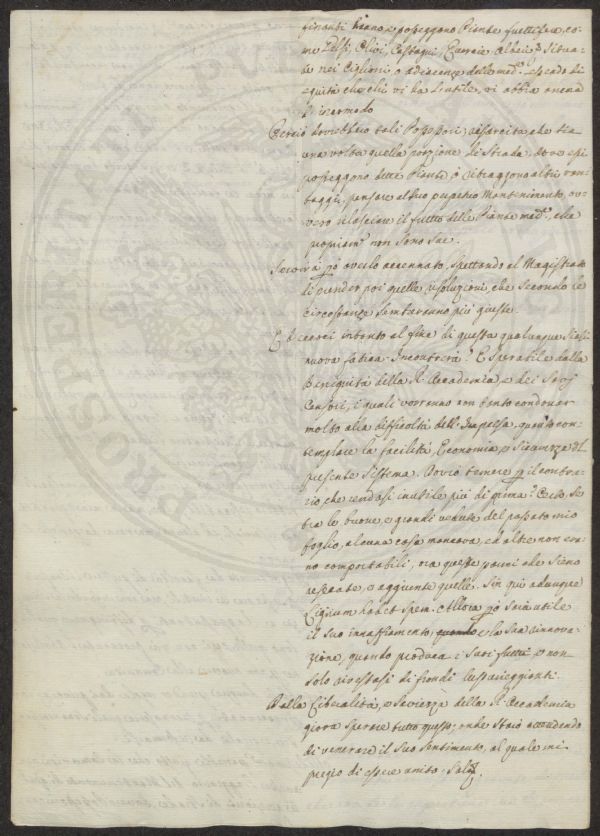 ginanti hanno, e posseggono Piante fruttifere, co-
me Gelsi, Olivi, Castagni, Querce, Alberi &c. Situa-
te nei Ciglioni, o adiacenze delle med.e essendo di
equità che chi vi ha l'utile, vi abbia ancora
l'incomodo
Perciò dovrebbero tali Possessori, risarcita che sia
una volta quella porzione di Strada, dove essi
posseggono dette Piante, o ritraggono altri van-
taggi, pensare al suo perpetuo Mantenimento, ov-
vero rilasciare il frutto delle Piante med.e, che
propriam.e non sono sue.
Servirà però averlo accennato, spettando al Magistrato
di prender poi quelle risoluzioni, che secondo le
circostanze sembraranno più giuste.
E che cosa intanto al fine di questa qualunque siasi
nuova fatica incontrerà? È sperabile dalla
benignità della R. Accademia, e dei Savj
Censori, i quali vorranno non tanto condonar
molto alla difficoltà dell'Impresa, quanto con-
templare la facilità, Economia, e sicurezza del
presente Sistema. Dovrò temere per il contra-
rio, che rendasi inutile più di prima? Certo, se
tra le buone, e grandi vedute del passato mio
foglio, alcuna cosa mancava, ed altre non era-
no comportabili, ora queste pormi che sieno
resecate, e aggiunte quelle. Sin quì adunque
Lignum habet spem. Allora però sarà utile
il suo innaffiamento, e la sua rinnova-
zione, quando produca i suoi frutti, e non
solo rivestasi di frondi lussureggianti.
Dalla Liberalità, e Saviezza della R. Accademia
giova sperare tutto questo; onde starò attendendo
di venerare il suo sentimento, al quale mi
pregio di essere unito. Salq.
PRO